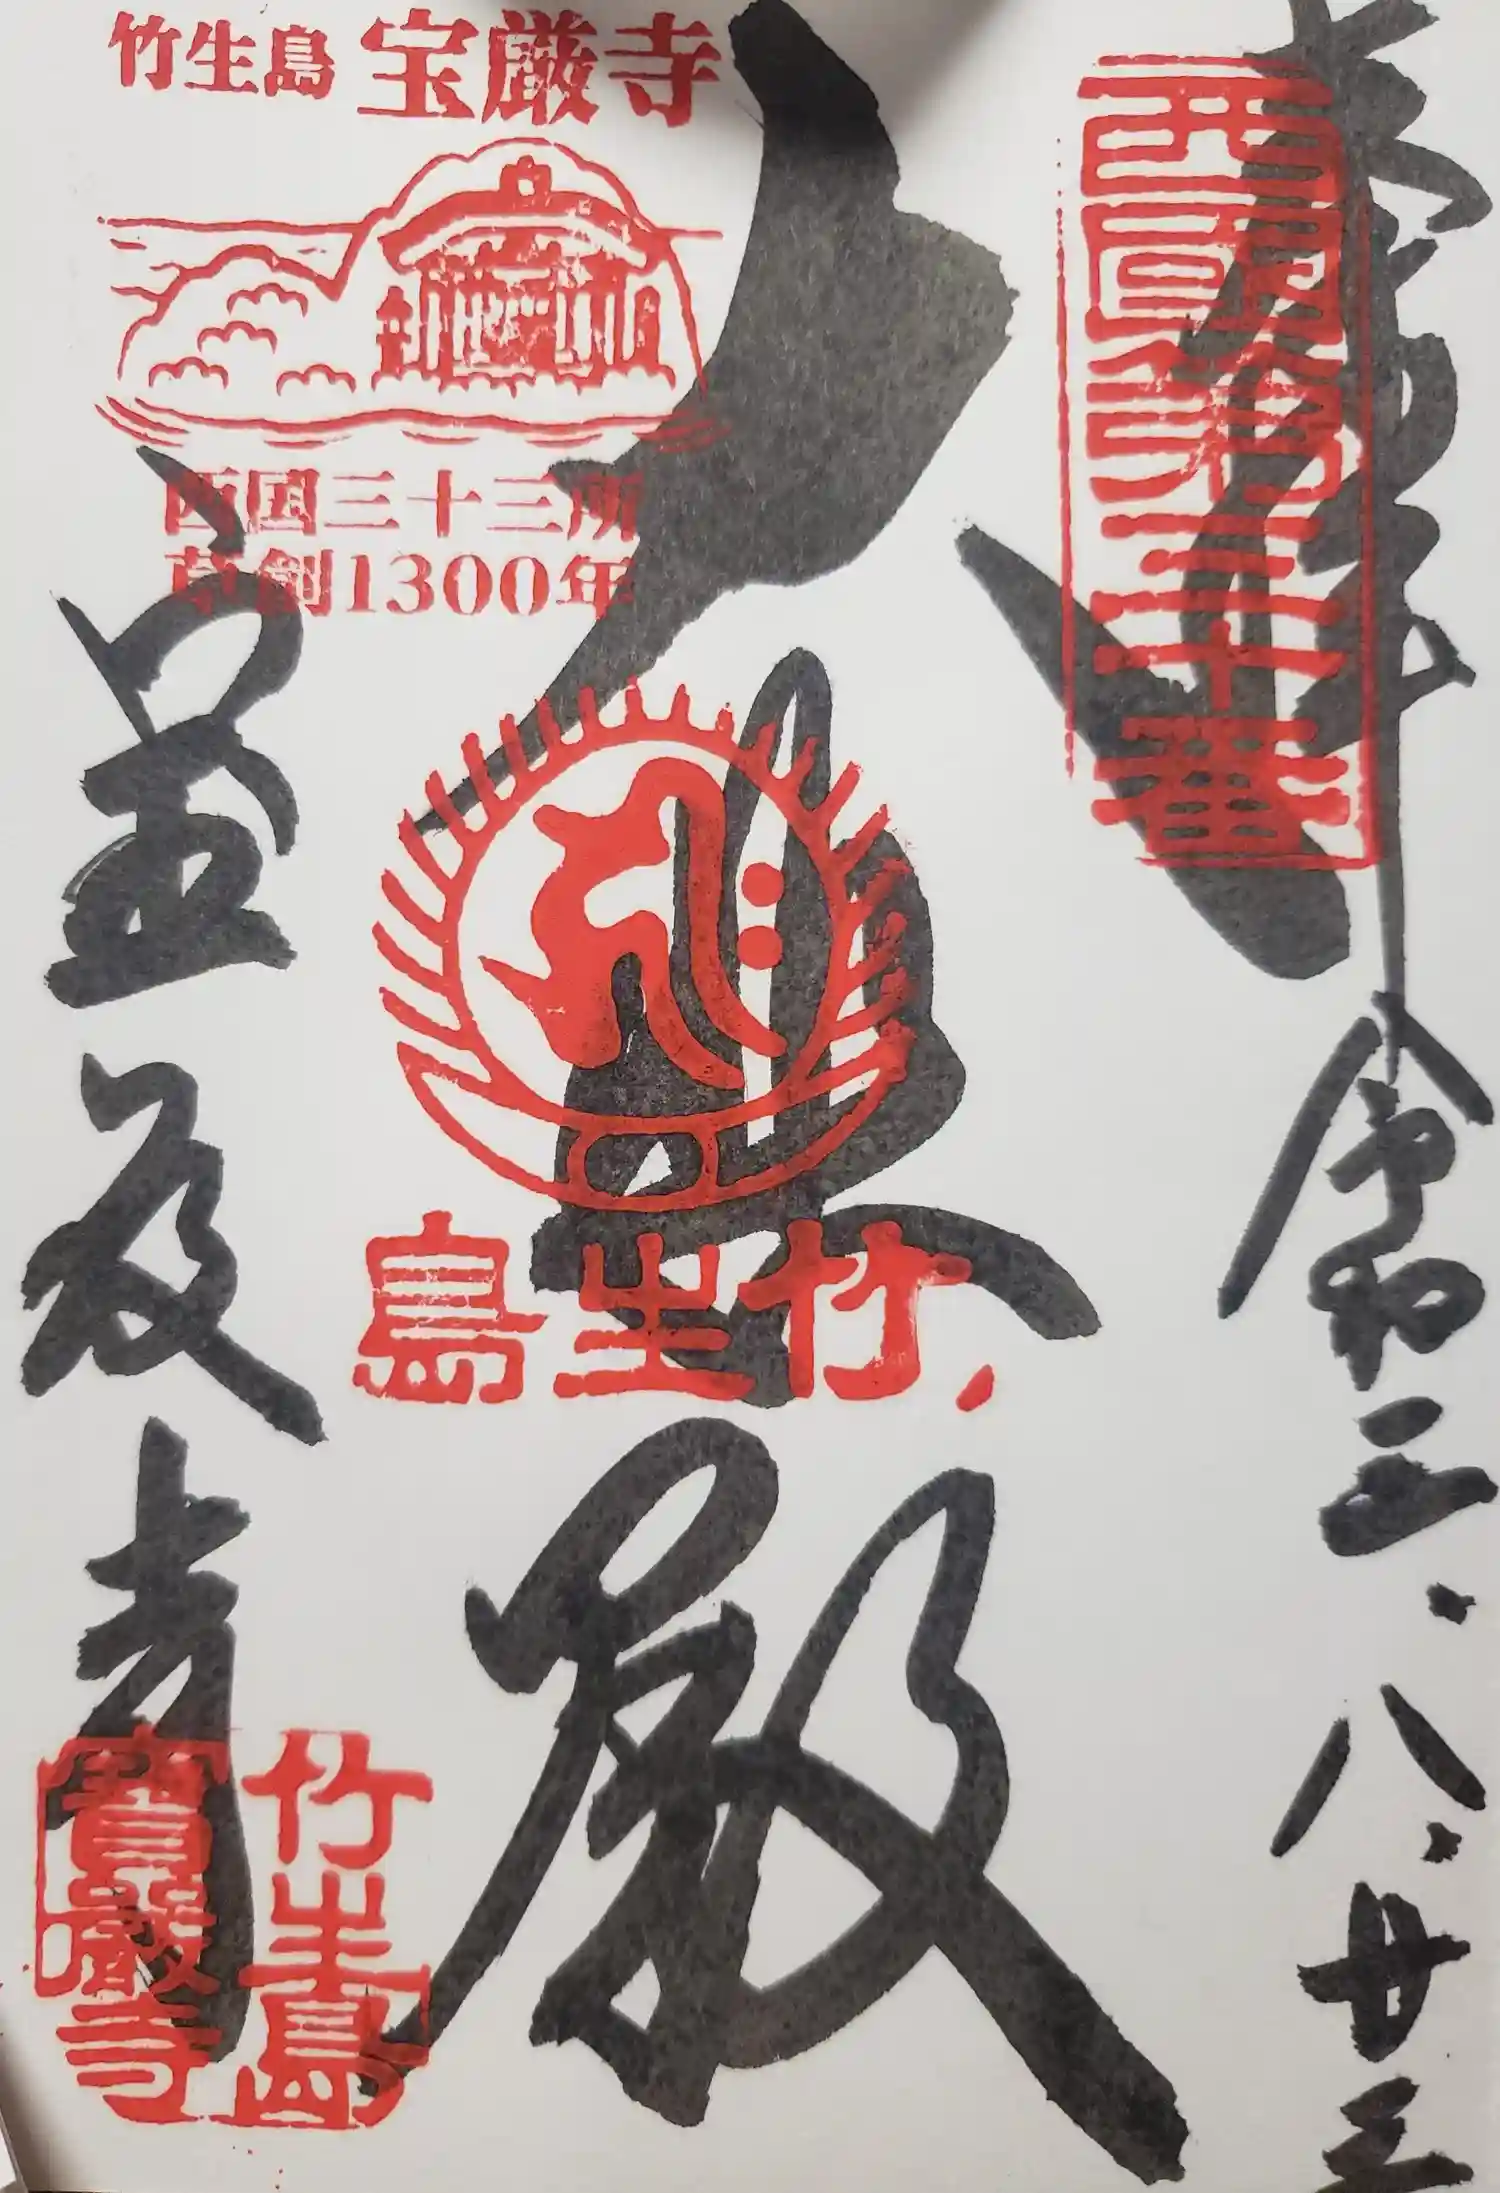 竹生島 宝厳寺
西国三十三所
草創1300年
奉拝
令和三.八.廿三
西國第三十番
大悲殿
竹生島
宝厳寺
竹生島
寶嚴寺